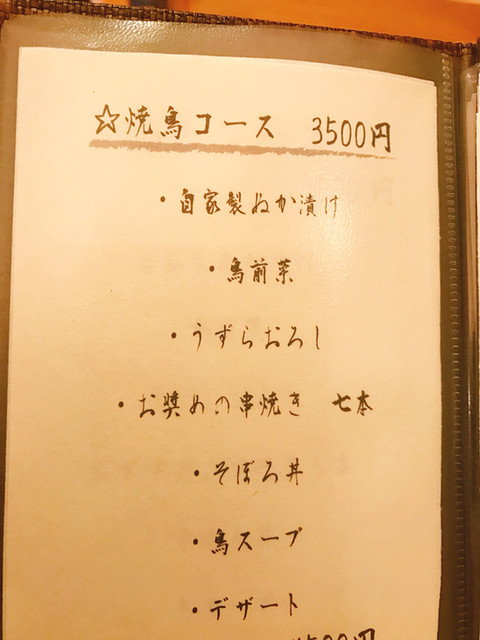 ☆焼鳥コース 3500円
・自家製ぬか漬け
・鳥前菜
・うずらおろし
・お奨めの串焼き 七本
・そぼろ丼
・鳥スープ
・デザート